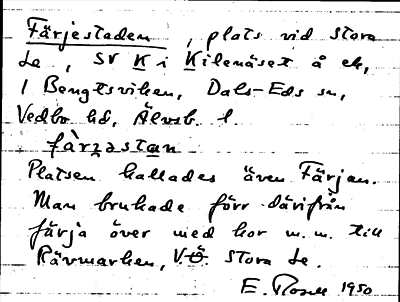 Färjestaden, plats vid stora
Le, SV K i Kilenäset å ek,
i Bengtsviken, Dals-Eds sn,
Vedbo hd, Älvsb. l.
färjəstan
Platsen kallades även Färjan.
Man brukade förr därifrån
färja över med kor m.m. till
Rävmarken, V.Ö. Stora Le.
E. Rosell 1950